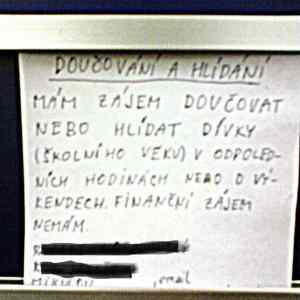 DOUČOVÁNÍ A HLÍDÁNÍ
MÁM ZÁJEM DOUČOVAT
NEBO HLÍDAT DÍVKY
(ŠKOLNÍHO VĚKU) V ODPOLED-
NÍCH HODINÁCH NEBO O VÍ-
KENDECH. FINANČNÍ ZÁJEM
NEMÁM.